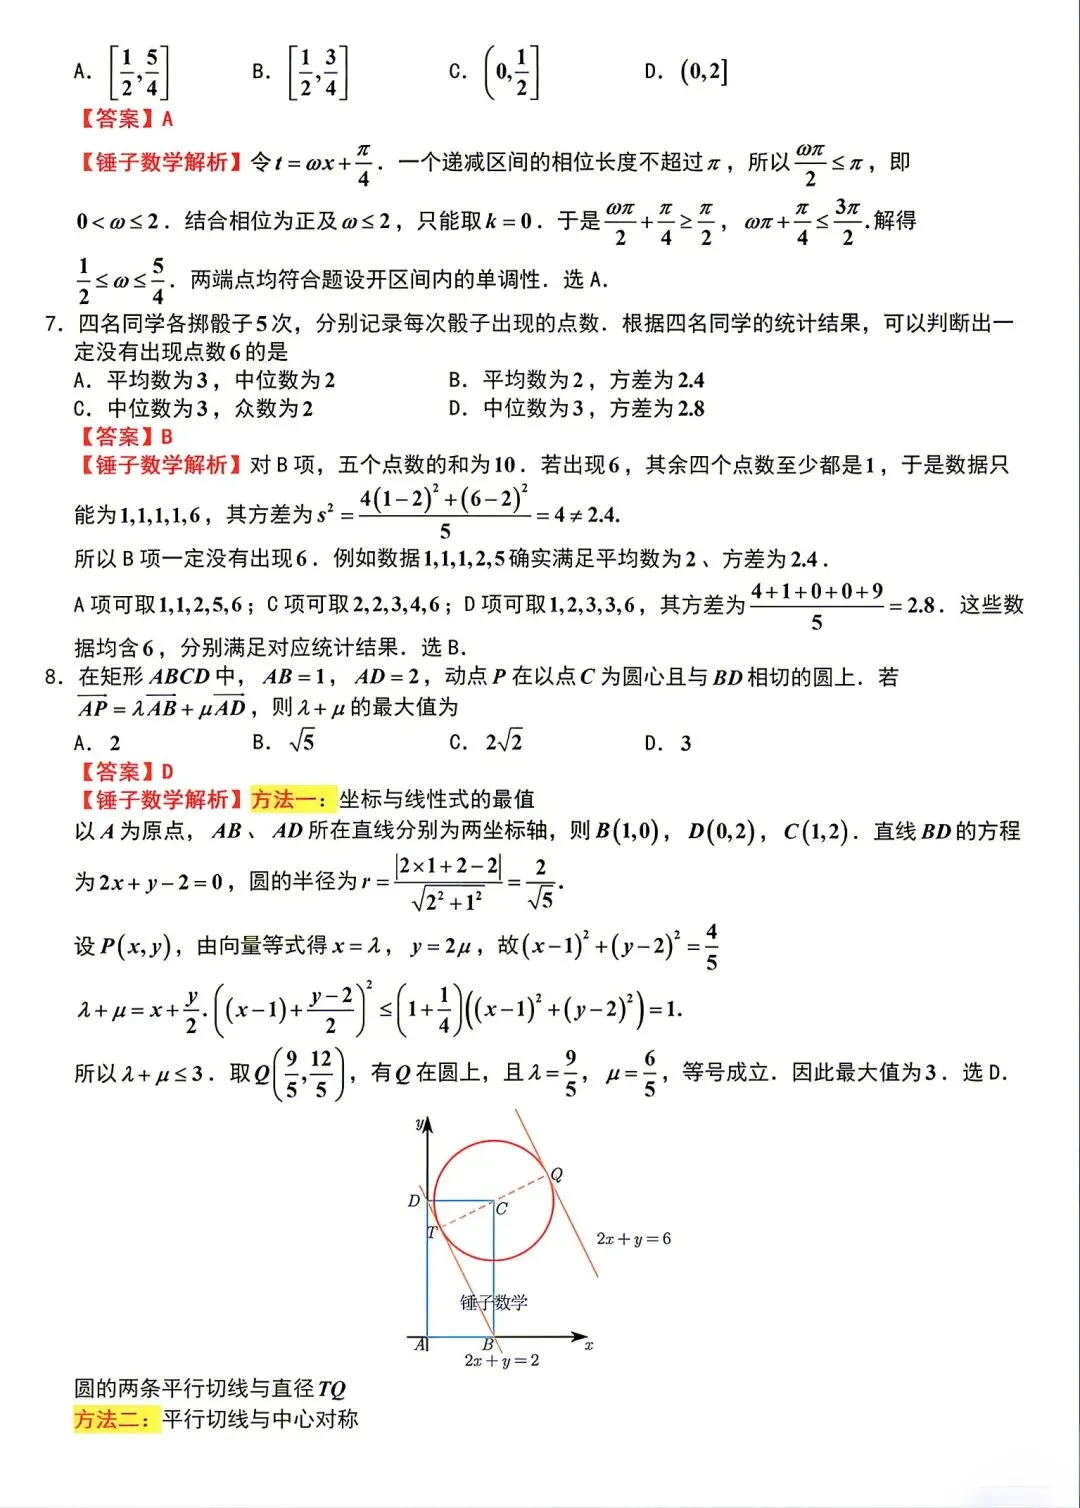 A. [1/2, 5/4] B. [1/2, 3/4] C. (0, 1/2] D. (0,2]
【答案】A
【锤子数学解析】令 t = ωx + π/4. 一个递减区间的相位长度不超过 π, 所以 ωπ/2 ≤ π, 即
0 < ω ≤ 2. 结合相位为正及 ω ≤ 2, 只能取 k = 0. 于是 ωπ/2 + π/4 ≥ π/2, ωπ + π/4 ≤ 3π/2. 解得
1/2 ≤ ω ≤ 5/4. 两端点均符合题设开区间内的单调性. 选 A.
7. 四名同学各掷骰子 5 次, 分别记录每次骰子出现的点数. 根据四名同学的统计结果, 可以判断出一
定没有出现点数 6 的是
A. 平均数为 3, 中位数为 2 B. 平均数为 2, 方差为 2.4
C. 中位数为 3, 众数为 2 D. 中位数为 3, 方差为 2.8
【答案】B
【锤子数学解析】对 B 项, 五个点数的和为 10. 若出现 6, 其余四个点数至少都是 1, 于是数据只
能为 1,1,1,1,6, 其方差为 s² = (4(1−2)² + (6−2)²)/5 = 4 ≠ 2.4.
所以 B 项一定没有出现 6. 例如数据 1,1,1,2,5 确实满足平均数为 2、方差为 2.4.
A 项可取 1,1,2,5,6; C 项可取 2,2,3,4,6; D 项可取 1,2,3,3,6, 其方差为 (4+1+0+0+9)/5 = 2.8. 这些数
据均含 6, 分别满足对应统计结果. 选 B.
8. 在矩形 ABCD 中, AB = 1, AD = 2, 动点 P 在以点 C 为圆心且与 BD 相切的圆上. 若
AP→ = λAB→ + μAD→, 则 λ + μ 的最大值为
A. 2 B. √5 C. 2√2 D. 3
【答案】D
【锤子数学解析】方法一: 坐标与线性式的最值
以 A 为原点, AB、AD 所在直线分别为两坐标轴, 则 B(1,0), D(0,2), C(1,2). 直线 BD 的方程
为 2x + y − 2 = 0, 圆的半径为 r = |2×1+2−2|/√(2²+1²) = 2/√5.
设 P(x,y), 由向量等式得 x = λ, y = 2μ, 故 (x−1)² + (y−2)² = 4/5
λ + μ = x + y/2. ((x−1) + (y−2)/2)² ≤ (1 + 1/4)((x−1)² + (y−2)²) = 1.
所以 λ + μ ≤ 3. 取 Q(9/5, 12/5), 有 Q 在圆上, 且 λ = 9/5, μ = 6/5, 等号成立. 因此最大值为 3. 选 D.
y
Q
D
C
T
2x + y = 6
锤子数学
A
B
x
2x + y = 2
圆的两条平行切线与直径 TQ
方法二: 平行切线与中心对称